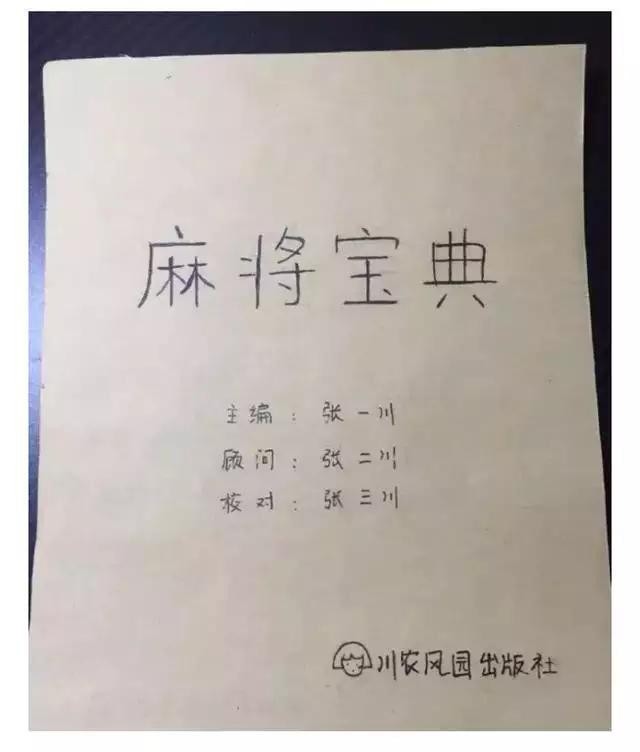 麻将宝典
主编：张一川
顾问：张二川
核对：张三川
川农风园出版社